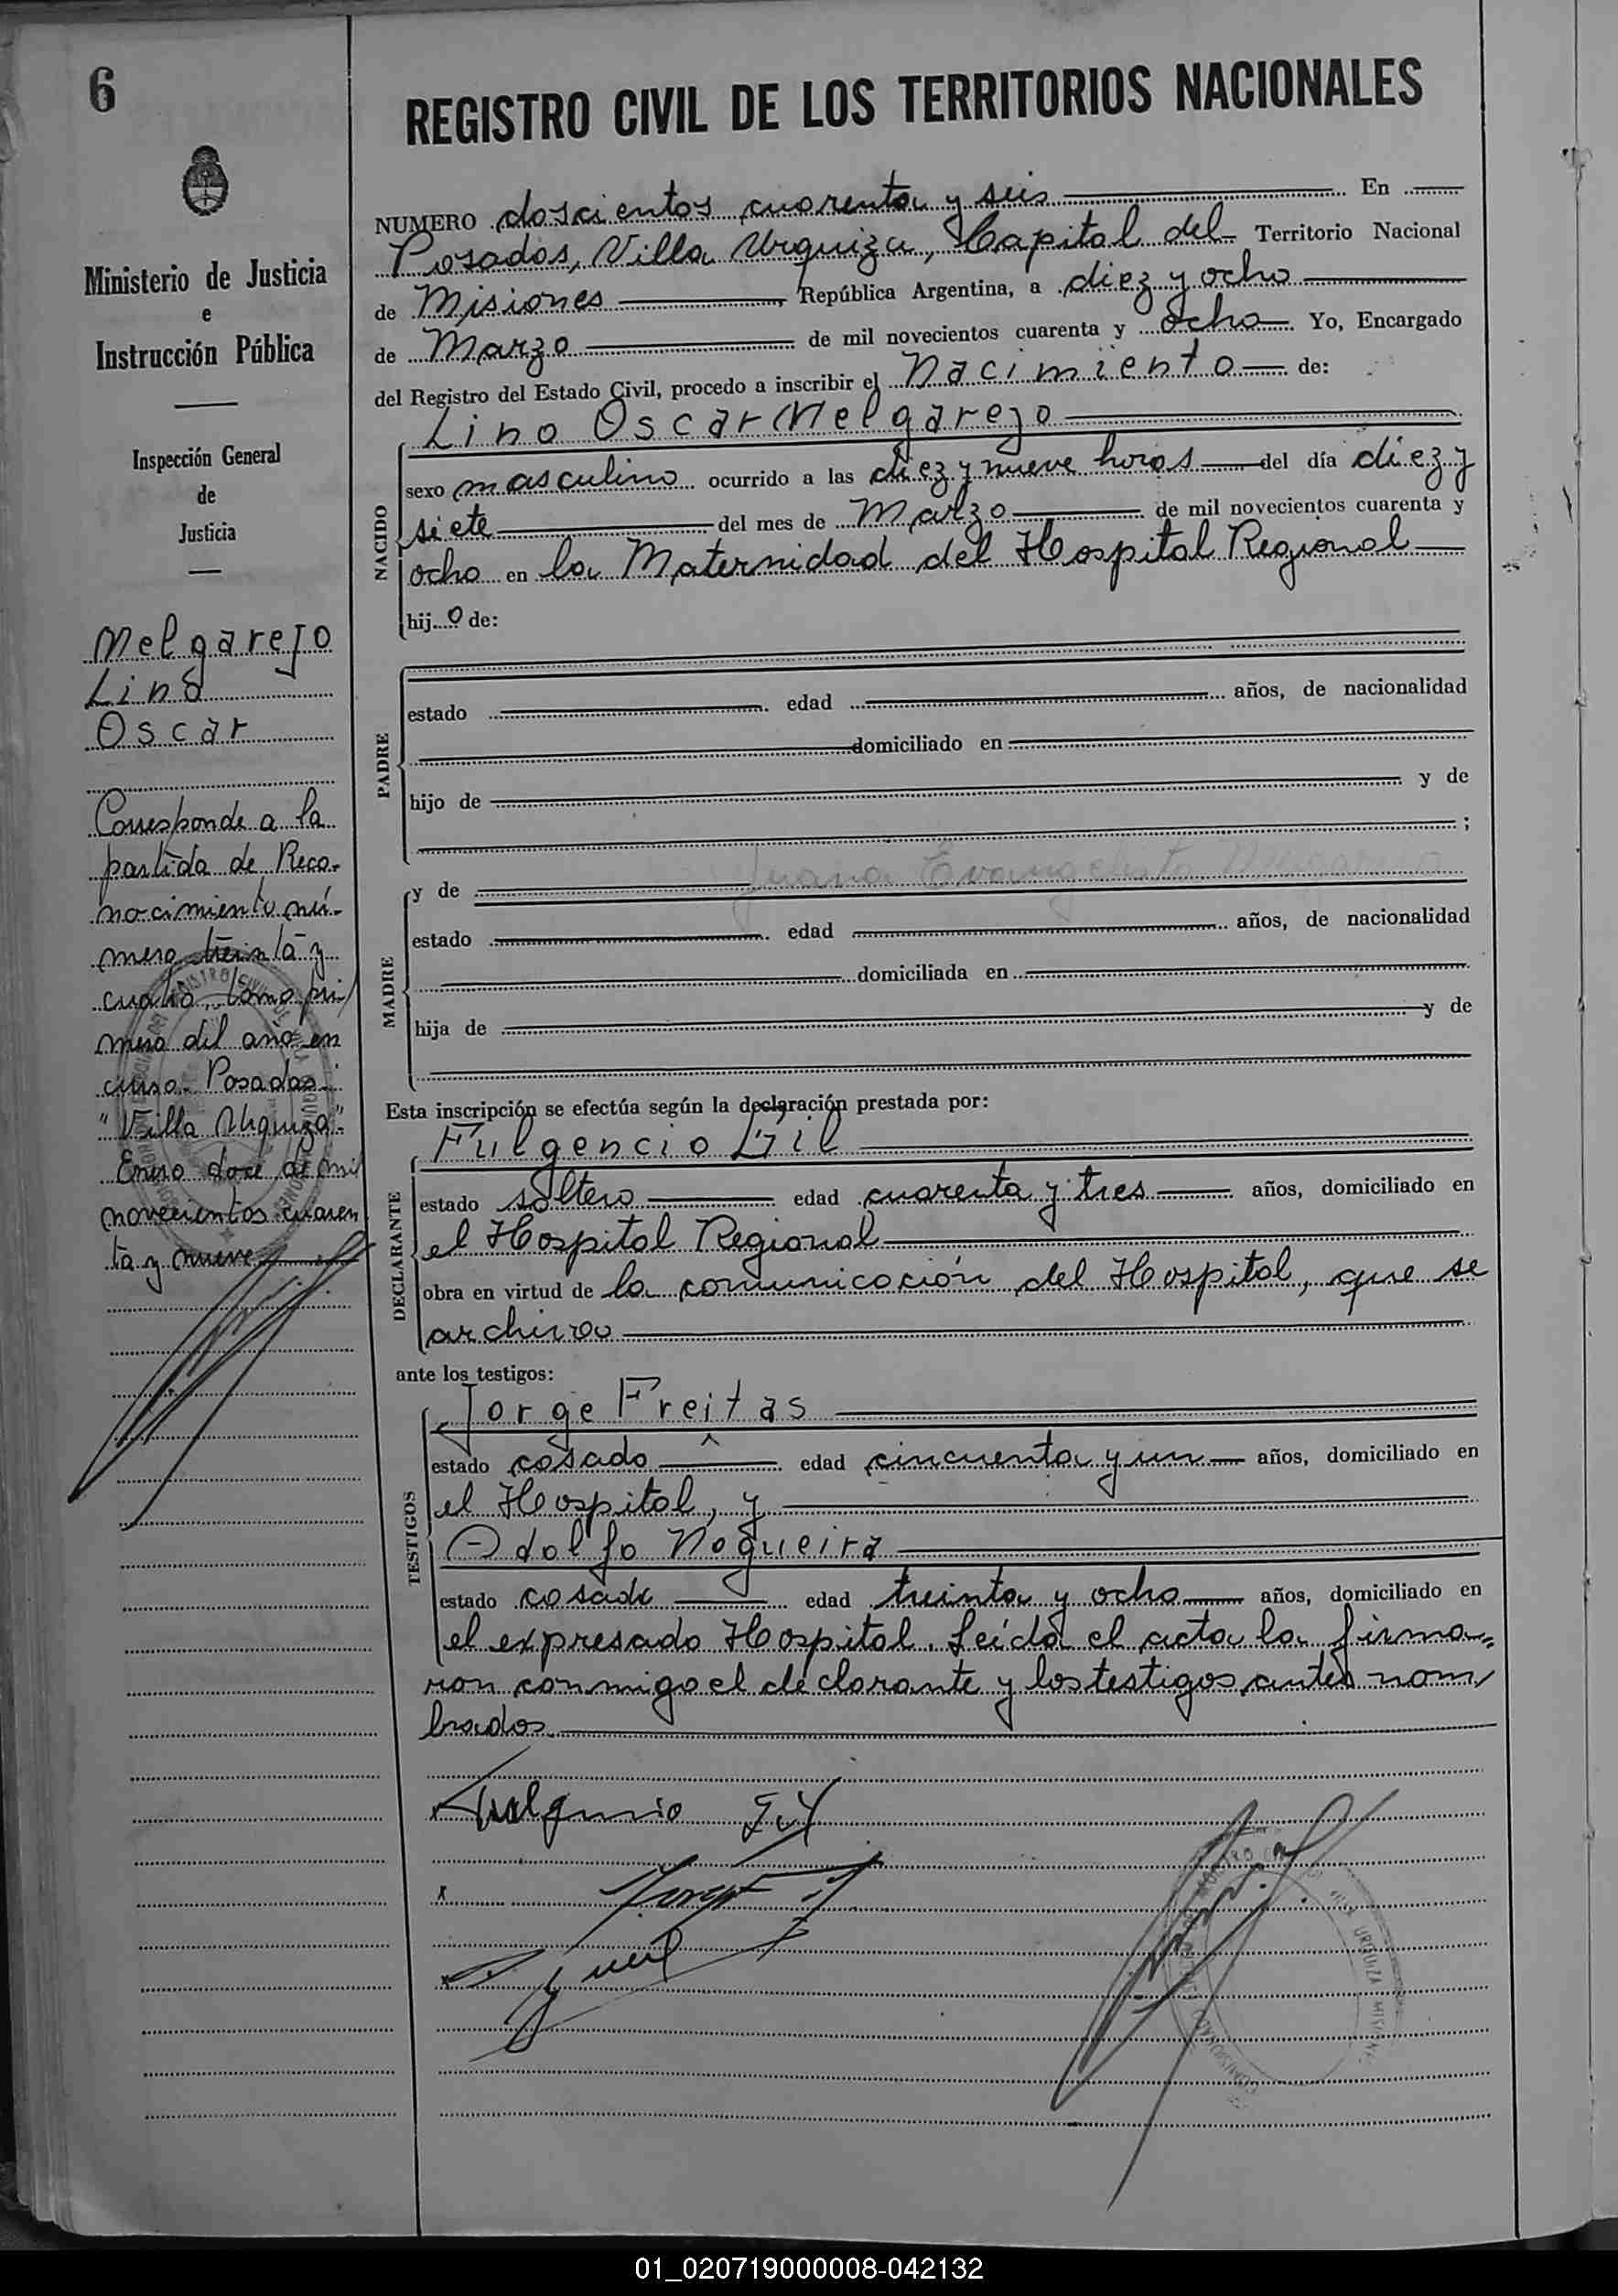 6
REGISTRO CIVIL DE LOS TERRITORIOS NACIONALES
Ministerio de Justicia
e
Instrucción Pública
Inspección General
de
Justicia
Melgarejo
Lino
Oscar
Corresponde a la
partida de Reco-
nocimiento nú-
mero treinta y
cuatro, tomo pri
mero del año en
curso. Posadas
"Villa Urquiza".
Enero doce de mil
novecientos cuaren
ta y nueve
NUMERO doscientos cuarenta y seis En
Posadas, Villa Urquiza, Capital del Territorio Nacional
de Misiones, República Argentina, a diez y ocho
de Marzo de mil novecientos cuarenta y ocho. Yo, Encargado
del Registro del Estado Civil, procedo a inscribir el Nacimiento de:
Lino Oscar Melgarejo
NACIDO
sexo masculino ocurrido a las diez y nueve horas del día diez y
siete del mes de Marzo de mil novecientos cuarenta y
ocho en la Maternidad del Hospital Regional
hijo de:
PADRE
estado edad años, de nacionalidad
domiciliado en
hijo de y de
;
MADRE
y de Juana Evangelista
estado edad años, de nacionalidad
domiciliada en
hija de y de
Esta inscripción se efectúa según la declaración prestada por:
DECLARANTE
Fulgencio Gil
estado soltero edad cuarenta y tres años, domiciliado en
el Hospital Regional
obra en virtud de la comunicación del Hospital, que se
archiva
ante los testigos:
TESTIGOS
Jorge Freitas
estado casado edad cincuenta y un años, domiciliado en
el Hospital, y
Adolfo Nogueira
estado casado edad treinta y ocho años, domiciliado en
el expresado Hospital. Leída el acta la firma=
ron conmigo el declarante y los testigos antes nom
brados.
Fulgencio Gil
01_020719000008-042132